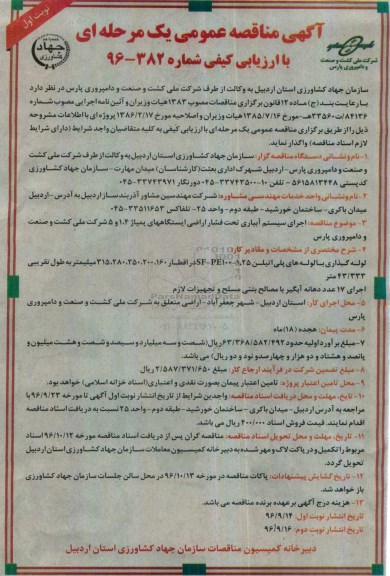 نوبت اول
آگهی مناقصه عمومی یک مرحله ای
با ارزیابی کیفی شماره ۳۸۲-۹۶
جهاد
کشاورزی
شرکت ملی کشت و صنعت
و دامپروری پارس
سازمان جهاد کشاورزی استان اردبیل به وکالت از طرف شرکت ملی کشت و صنعت و دامپروری پارس در نظر دارد
با رعایت بند (ج) ماده ۱۲ قانون برگزاری مناقصات مصوب ۱۳۸۳ هیات وزیران و آئین نامه اجرایی مصوب شماره
۸۴۱۳۶/ت۳۳۵۶۰هـ مورخ ۱۳۸۵/۷/۱۶ هیات وزیران و اصلاحیه مورخ ۱۳۸۶/۲/۱۷ پروژه ای با اطلاعات مشروحه
ذیل را از طریق برگزاری مناقصه عمومی یک مرحله ای با ارزیابی کیفی به کلیه متقاضیان واجد شرایط (دارای شرایط
لازم اسناد مناقصه) واگذار نماید.
۱- نام و نشانی دستگاه مناقصه گزار: سازمان جهاد کشاورزی استان اردبیل به وکالت از طرف شرکت ملی کشت
و صنعت و دامپروری پارس - اردبیل شهرک اداری بعثت (کارشناسان) میدان مهارت - سازمان جهاد کشاورزی
کدپستی ۵۶۱۵۸۱۳۴۴۸ - تلفن ۱۰-۳۳۷۴۳۵۰۰-۰۴۵ دورنگار ۳۳۷۴۳۹۷۱-۰۴۵
۲- نام و نشانی واحد خدمات مهندسی مشاوره: شرکت مهندسین مشاور آذربندساز اردبیل به آدرس - اردبیل
میدان باکری - ساختمان خورشید - طبقه دوم - واحد ۲۵ - تلفاکس ۳۳۵۱۱۶۵۳-۰۴۵
۳- موضوع مناقصه: اجرای سیستم آبیاری تحت فشار اراضی ایستگاههای پمپاژ ۱،۴ و ۵ شرکت ملی کشت و صنعت
و دامپروری پارس
۴- شرح مختصری از مشخصات و مقادیر کار:
لوله گذاری با لوله های پلی اتیلن SF-PE100-۹،۲۵ در اقطار ۳۱۵،۲۸۰،۲۵۰،۲۰۰،۱۶۰ میلیمتر به طول تقریبی
۴۳/۳۳۳ متر
اجرای ۱۷ عدد دهانه آبگیر با مصالح بنتی مسلح و تجهیزات لازم
۵- محل اجرای کار: استان اردبیل - شهر جعفرآباد - اراضی متعلق به شرکت ملی کشت و صنعت و دامپروری
پارس
۶- مدت پیمان: هجده (۱۸) ماه
۷- مبلغ برآورد اولیه حدود ۶۳/۳۶۸/۵۸۲/۴۹۲ ریال (شصت و سه میلیارد و سیصد و شصت و هشت میلیون و
پانصد و هشتاد و دو هزار و چهارصد و نود و دو ریال) می باشد.
۸- مبلغ تضمین شرکت در فرآیند ارجاع کار: مبلغ ۲/۵۸۷/۳۷۱/۶۵۰ ریال
۹- محل تامین اعتبار پروژه: تامین اعتبار پیمان بصورت نقدی و اعتباری (اسناد خزانه اسلامی) خواهد بود.
۱۰- تاریخ، مهلت و محل دریافت اسناد مناقصه: واجدین شرایط از تاریخ انتشار نوبت اول آگهی تا مورخه ۹۶/۹/۲۳ با
مراجعه به آدرس اردبیل - میدان باکری - ساختمان خورشید - طبقه دوم - واحد ۲۵ نسبت به دریافت اسناد مناقصه
اقدام نمایند. قیمت فروش اسناد ۴۰۰/۰۰۰ ریال می باشد.
۱۱- تاریخ، مهلت و محل تحویل اسناد مناقصه: مناقصه گران پس از دریافت اسناد مناقصه مورخه ۹۶/۱۰/۱۲ اسناد
مربوط را تکمیل و در پاکت لاک و مهر شده به دبیرخانه کمیسیون معاملات سازمان جهاد کشاورزی استان اردبیل
تحویل گردد.
۱۲- تاریخ گشایش پیشنهادات: پاکات مناقصه در مورخه ۹۶/۱۰/۱۳ در محل سالن جلسات سازمان جهاد کشاورزی
باز خواهد شد.
۱۳- هزینه درج آگهی بر عهده برنده مناقصه می باشد.
تاریخ انتشار نوبت اول: ۹۶/۹/۱۴
تاریخ انتشار نوبت دوم: ۹۶/۹/۱۶
دبیرخانه کمیسیون مناقصات سازمان جهاد کشاورزی استان اردبیل